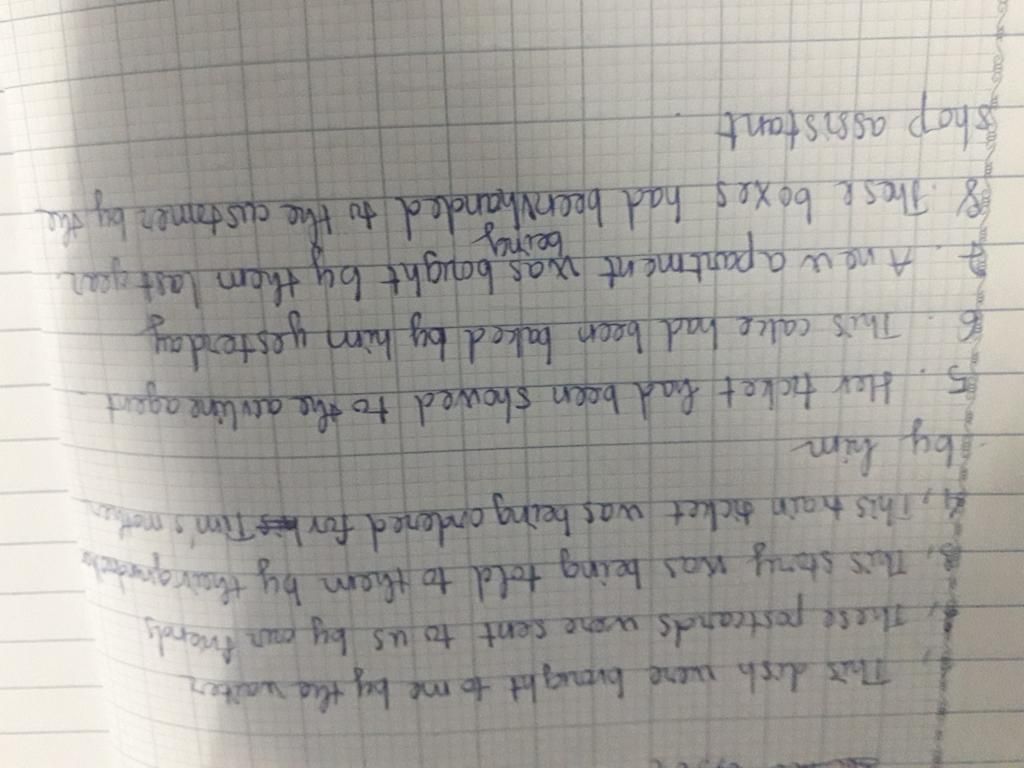 , This dish were brought to me by the waiter
, These postcards were sent to us by our friends
3, This story was being told to them by their
4, This train ticket was being ordered for Tim's mother
by him
5. Her ticket had been showed to the airline agent
6. This cake had been baked by him yesterday
7. A new apartment was bought by them last year
being
8. These boxes had been handed to the customer by the
shop assistant